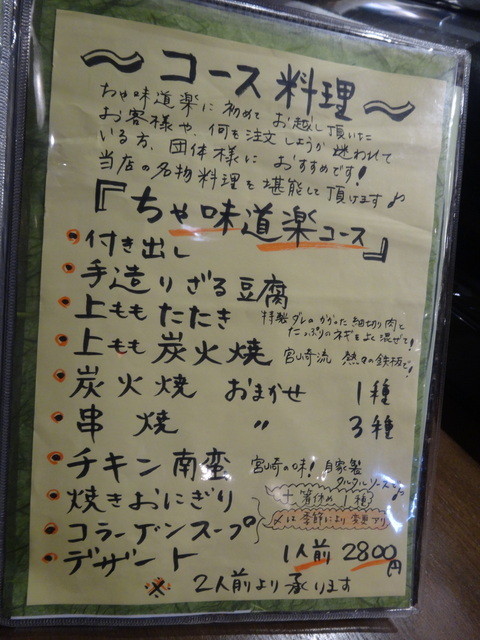 ～コース料理～
ちゃ味道楽に初めてお越し頂いた
お客様や、何を注文しようか迷われて
いる方、団体様におすすめです！
当店の名物料理を堪能して頂けます♪
『ちゃ味道楽コース』
付き出し
手造りざる豆腐
上ももたたき 特製ダレのかかった細切り肉と
たっぷりのネギをよく混ぜて！
上もも炭火焼 宮崎流 熱々の鉄板で！
炭火焼 おまかせ 1種
串焼 〃 3種
チキン南蛮 宮崎の味！自家製
タルタルソース♪
焼きおにぎり
＋箸休め1種
〆は季節により変更アリ
コラーゲンスープ
デザート 1人前 2800円
※ 2人前より承ります